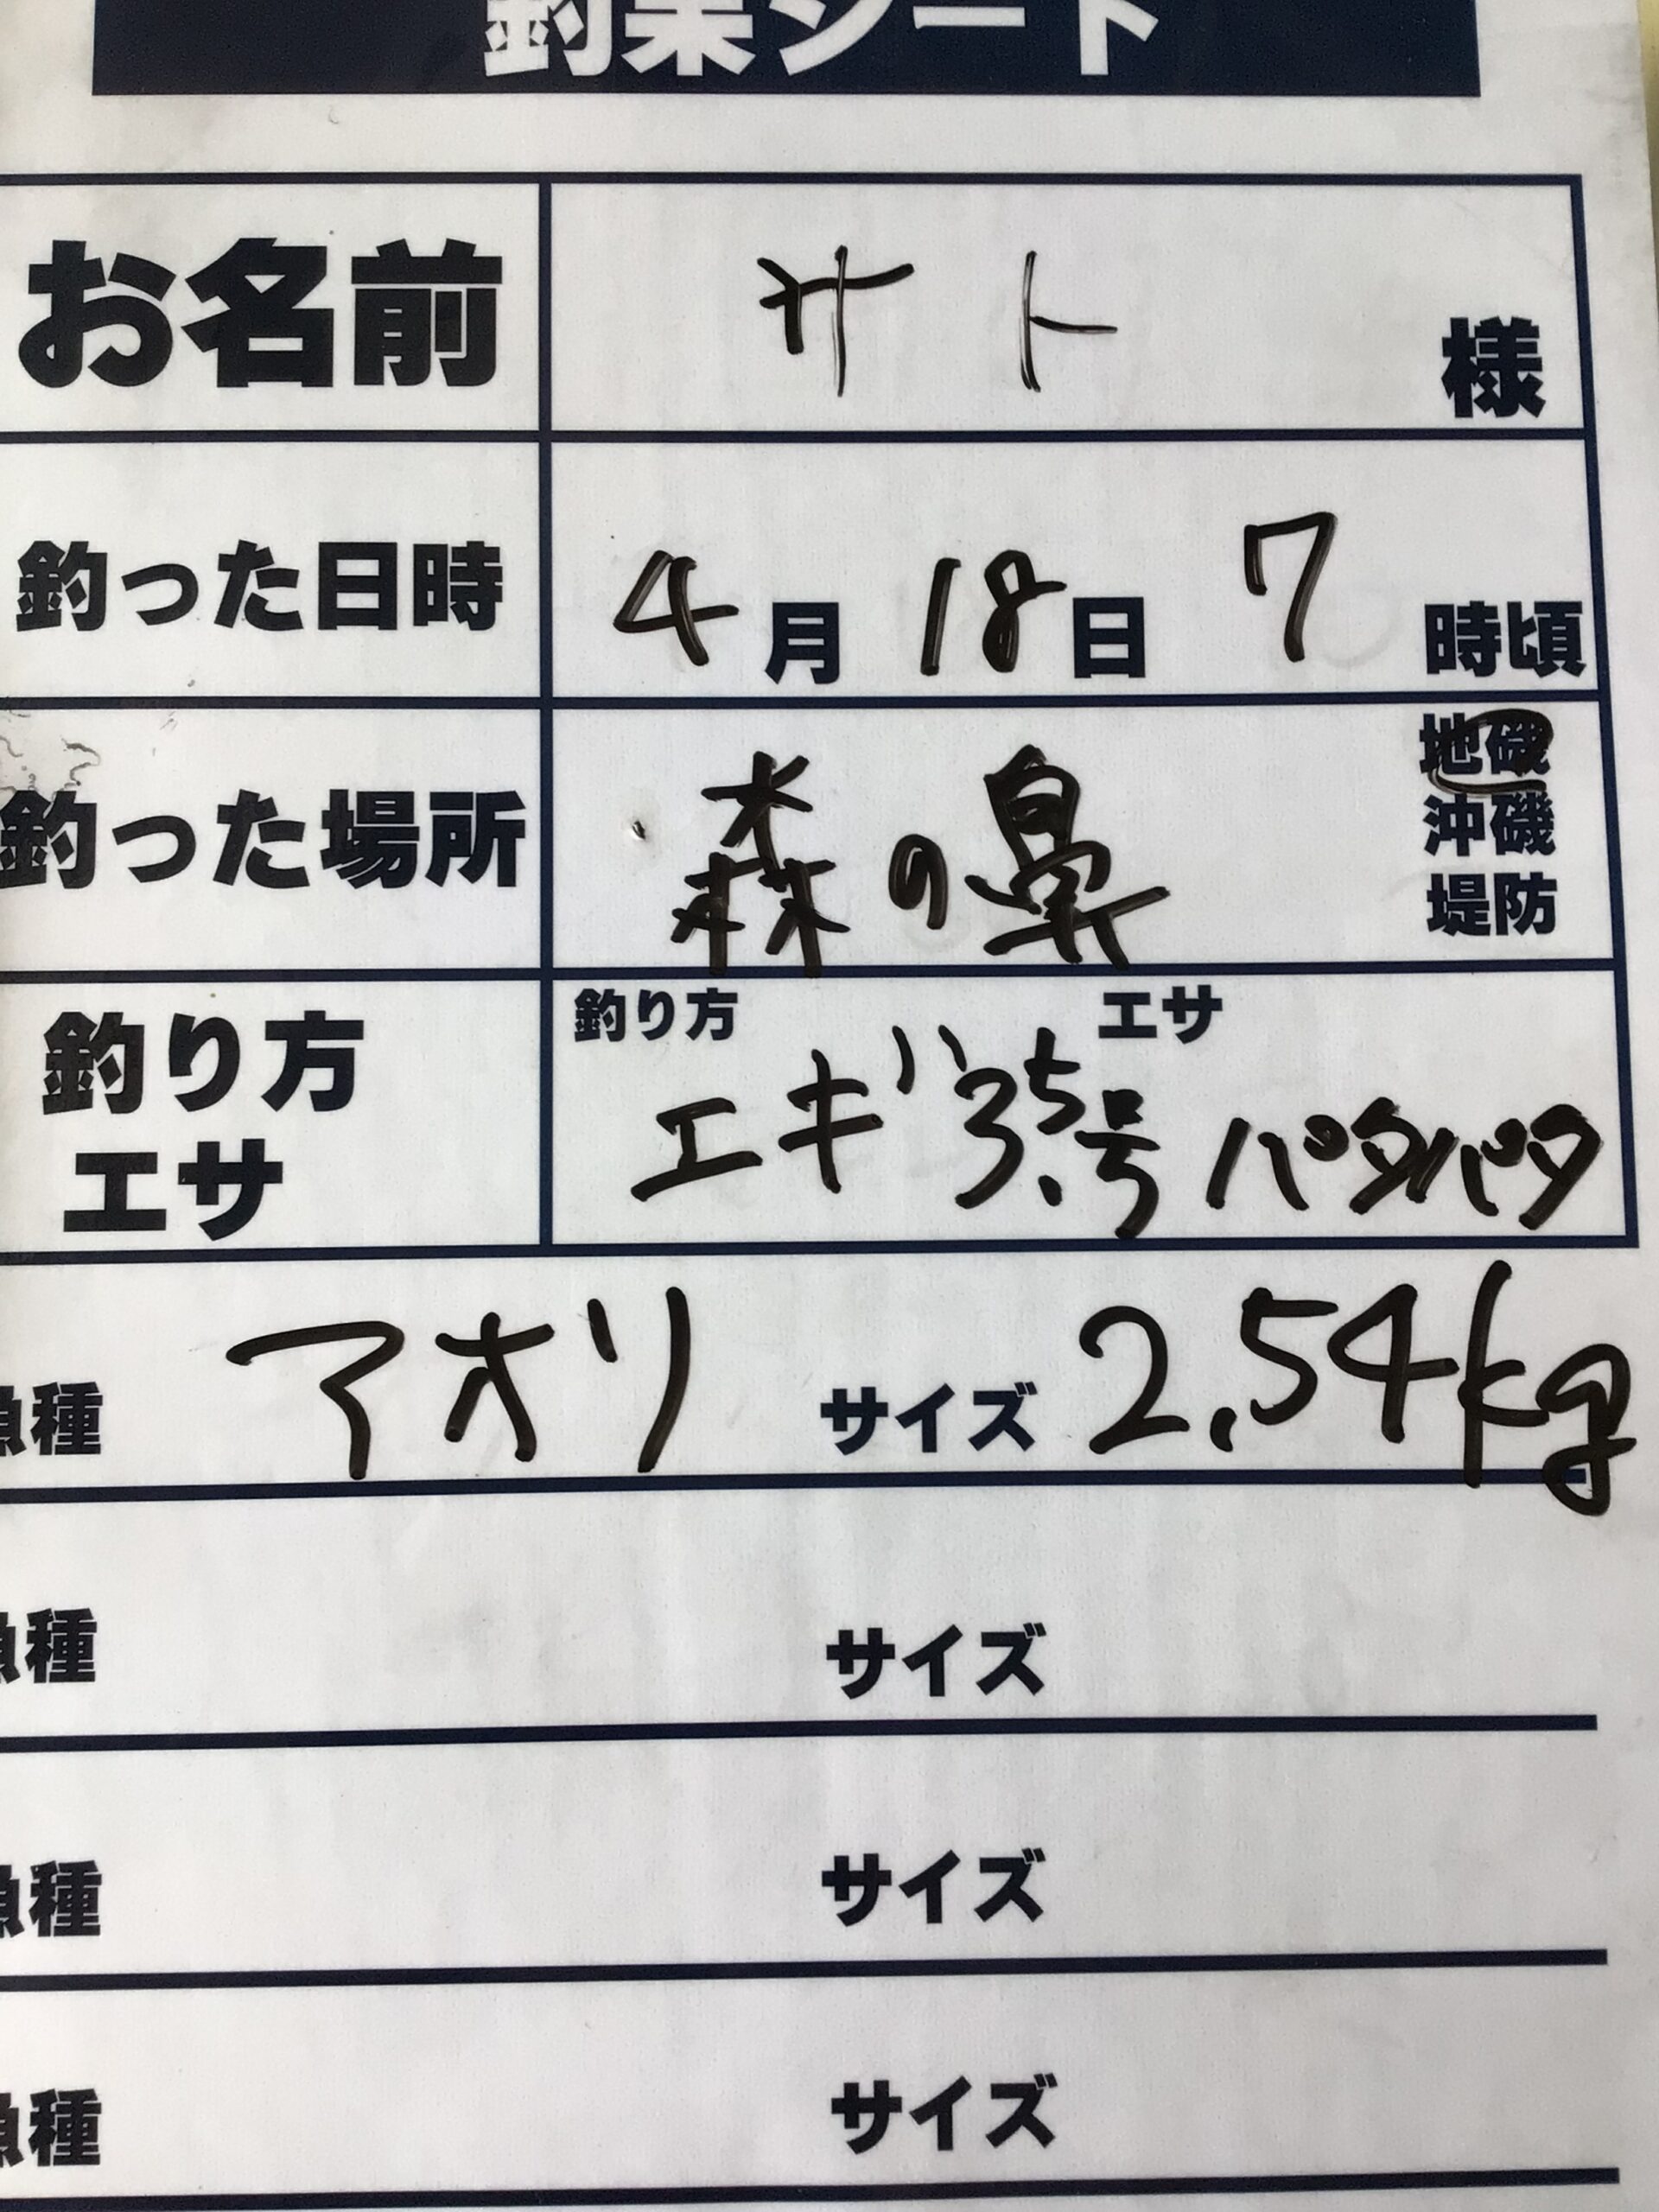 釣果シート
お名前 サト 様
釣った日時 4月 18日 7時頃
釣った場所 森の鼻 地磯
沖磯
堤防
釣り方 エサ
釣り方 エギ3.5号 パタパタ
エサ
魚種 アオリ サイズ 2.54kg
魚種 サイズ
魚種 サイズ
魚種 サイズ